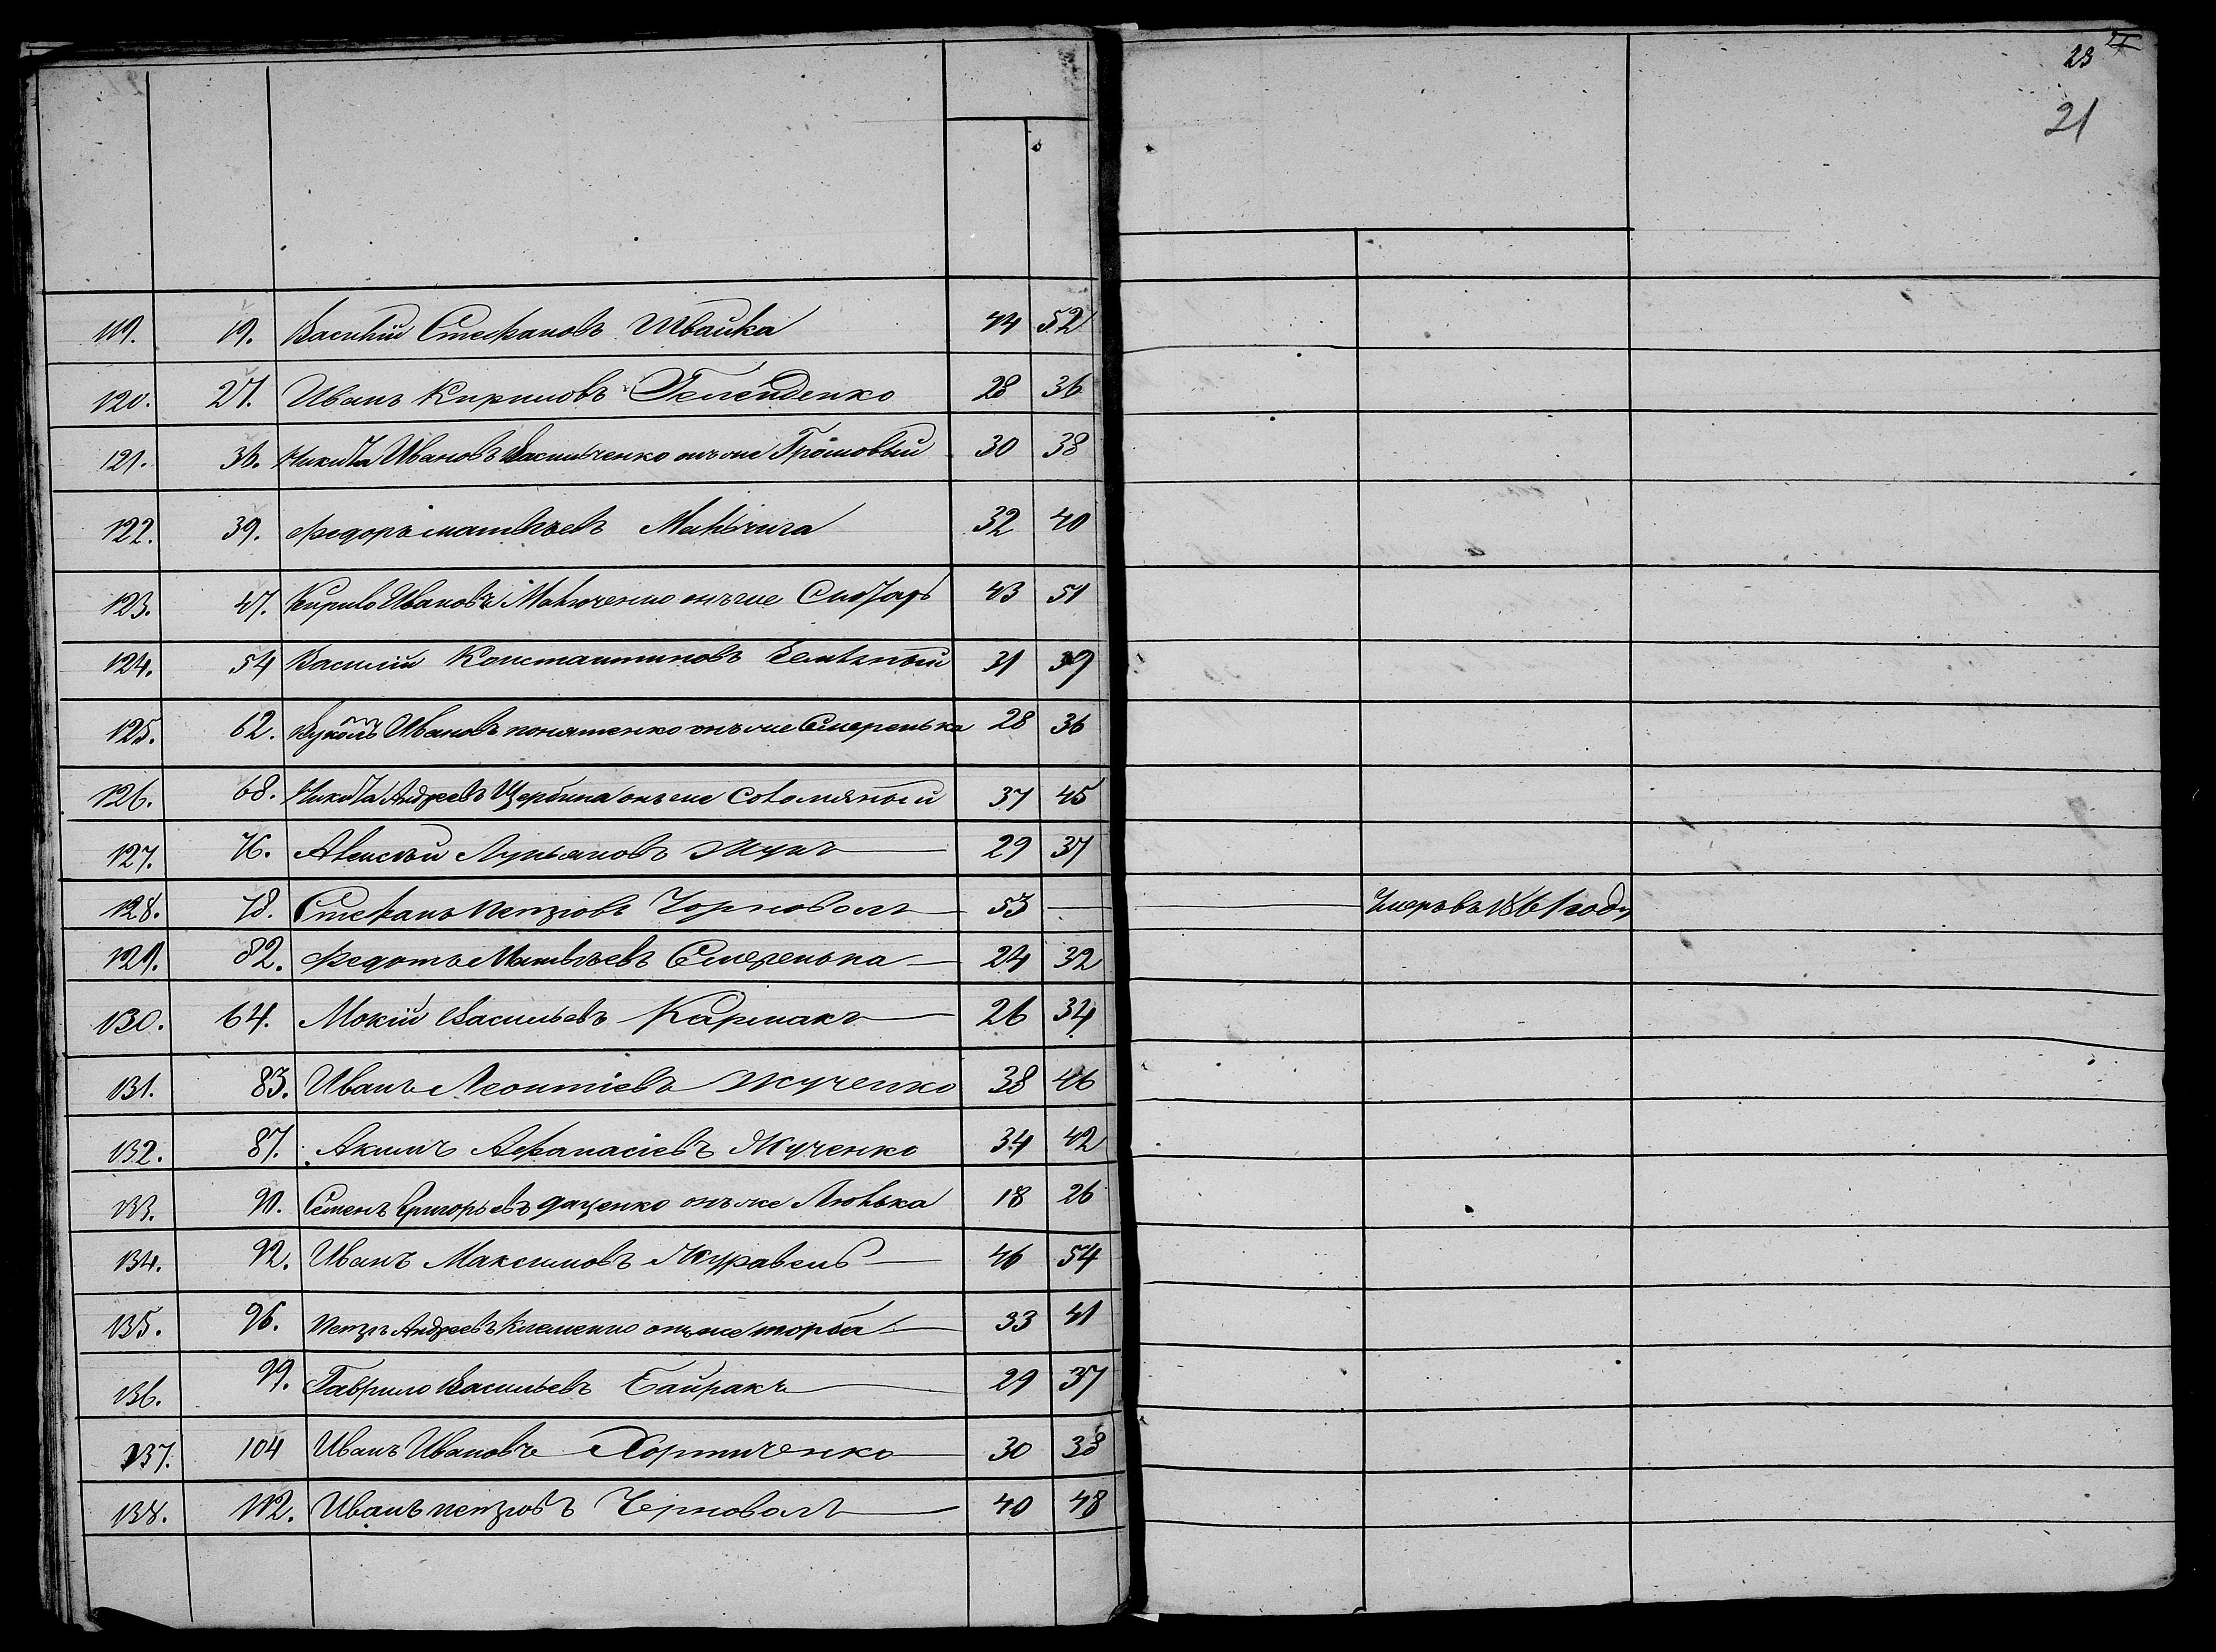 23
21
119. 19. Василій Стефановъ Швайка 44 52
120. 27. Иванъ Кириловъ 28 36
121. 36. Никита Ивановъ Васильченко онъ же Громовый 30 38
122. 39. Федоръ Матвѣевъ 32 40
123. 47. Кирило Ивановъ онъ же 43 51
124. 54 Василій Константиновъ 31 39
125. 62. Вуколъ Ивановъ онъ же Смеренька 28 36
126. 68. Никита Андреевъ Щербина онъ же Соломяный 37 45
127. 76. Алексѣй Лукьяновъ Жукъ 29 37
128. 78. Стефанъ Петровъ Чорноволъ 53 — Умеръ въ 1861 году
129. 82. Федотъ Матвѣевъ Смеренька 24 32
130. 64. Мокій Васильевъ Кармакъ 26 34
131. 83. Иванъ Леонтіевъ Жученко 38 46
132. 87. Акимъ Афанасіевъ Жученко 34 42
133. 90. Семенъ Григорьевъ Даценко онъ же Люлька 18 26
134. 92. Иванъ Максимовъ Журавель 46 54
135. 96. Петръ Андреевъ Клименко онъ же Торба 33 41
136. 99. Гаврило Васильевъ Байракъ 29 37
137. 104 Иванъ Ивановъ Хортиченко 30 38
138. 112. Иванъ Петровъ Черноволъ 40 48